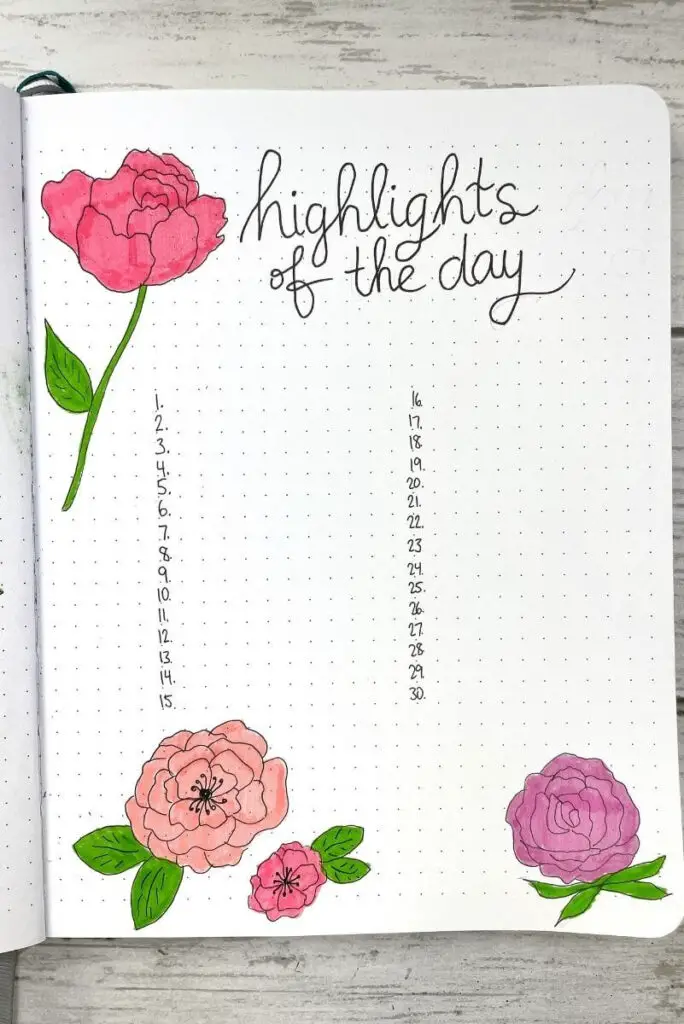 highlights
of the day
1.
2.
3.
4.
5.
6.
7.
8.
9.
10.
11.
12.
13.
14.
15.
16.
17.
18.
19.
20.
21.
22.
23
24.
25.
26.
27.
28.
29.
30.